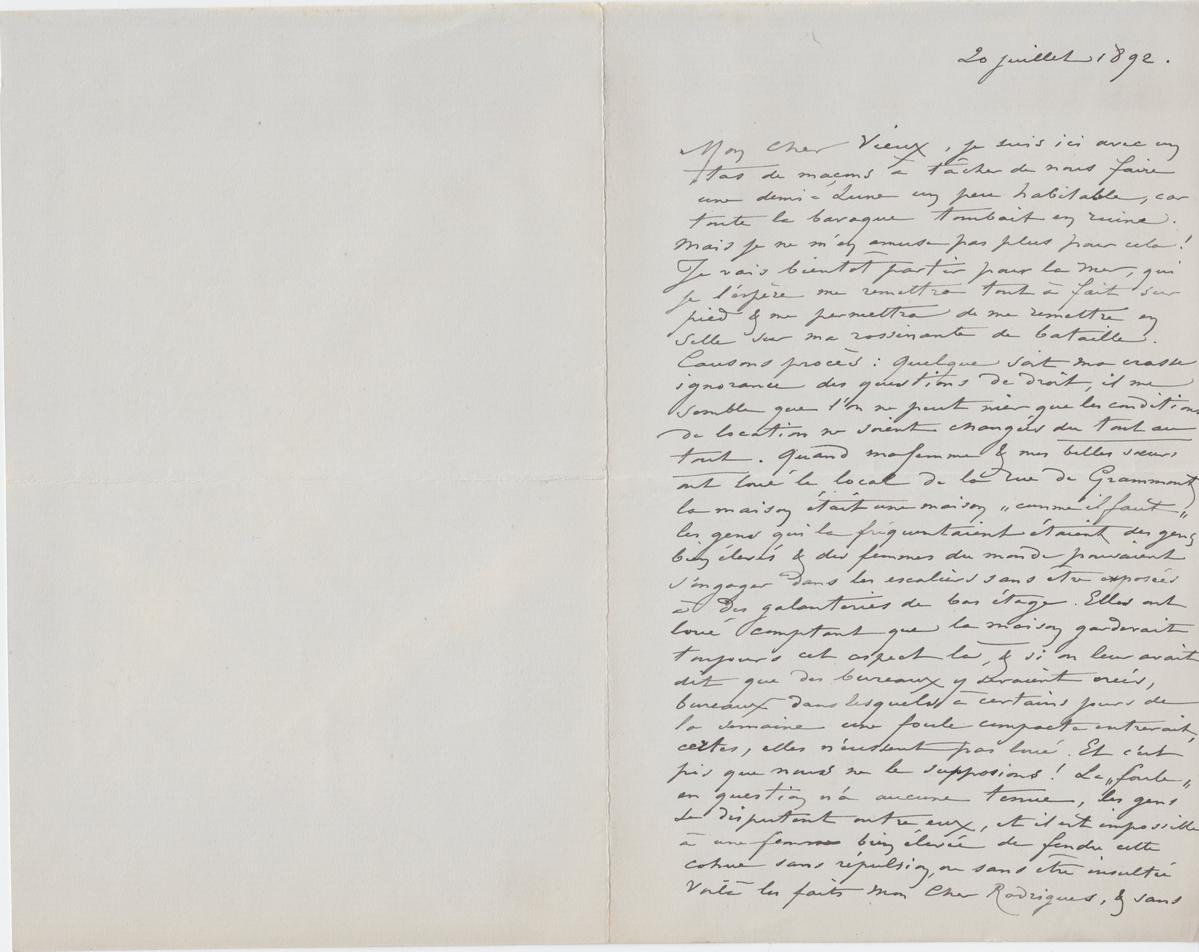 20 juillet 1892.
Mon Cher Vieux, je suis ici avec un
tas de maçons à tâcher de nous faire
une demie Lune un peu habitable, car
toute la baraque tombait en ruine.
Mais je ne m'en amuse pas plus pour cela!
Je vais bientôt partir pour la Mer, qui
je l'espère me remettra tout à fait sur
pied & me permettra de me remettre en
selle sur ma rossinante de bataille.
Causons procès : Quelque soit ma crasse
ignorance des questions de droit, il me
semble que l'on ne peut nier que les conditions
de location ne soient changées du tout au
tout. Quand ma femme & mes belles sœurs
ont loué le local de la rue de Grammont,
la maison était une maison „comme il faut"
les gens qui la fréquentaient étaient des gens
bien élevés & des femmes du monde pouvaient
s'engager dans les escaliers sans être exposées
à des galanteries de bas étage. Elles ont
loué comptant que la maison garderait
toujours cet aspect là, & si on leur avait
dit que des bureaux y seraient créés,
bureaux dans lesquels à certains jours de
la semaine une foule compacte entrerait,
certes, elles n'eussent pas loué. Et c'est
pis que nous ne le supposions! La „foule"
en question n'a aucune tenue, les gens
se disputent entre eux, et il est impossible
à une femme bien élevée de fendre cette
cohue sans répulsion, ou sans être insultée
Voilà les faits mon Cher Rodrigues, & sans